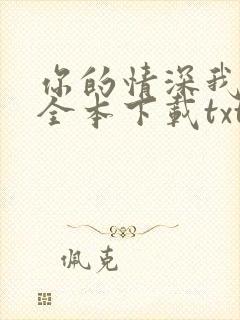 你的情深我
全本下载txt
佩克